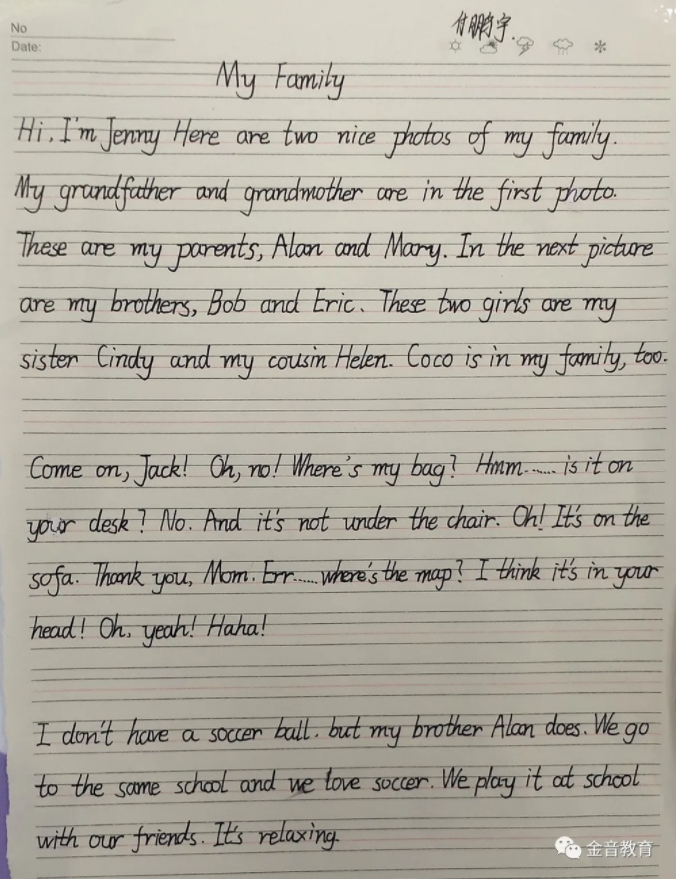 No
付鹏宇.
Date:
My Family
Hi, I'm Jenny Here are two nice photos of my family.
My grandfather and grandmother are in the first photo.
These are my parents, Alan and Mary. In the next picture
are my brothers, Bob and Eric. These two girls are my
sister Cindy and my cousin Helen. Coco is in my family, too.
Come on, Jack! Oh, no! Where's my bag? Hmm...... is it on
your desk? No. And it's not under the chair. Oh! It's on the
sofa. Thank you, Mom. Err...... where's the map? I think it's in your
head! Oh, yeah! Haha!
I don't have a soccer ball. but my brother Alan does. We go
to the same school and we love soccer. We play it at school
with our friends. It's relaxing.
金音教育